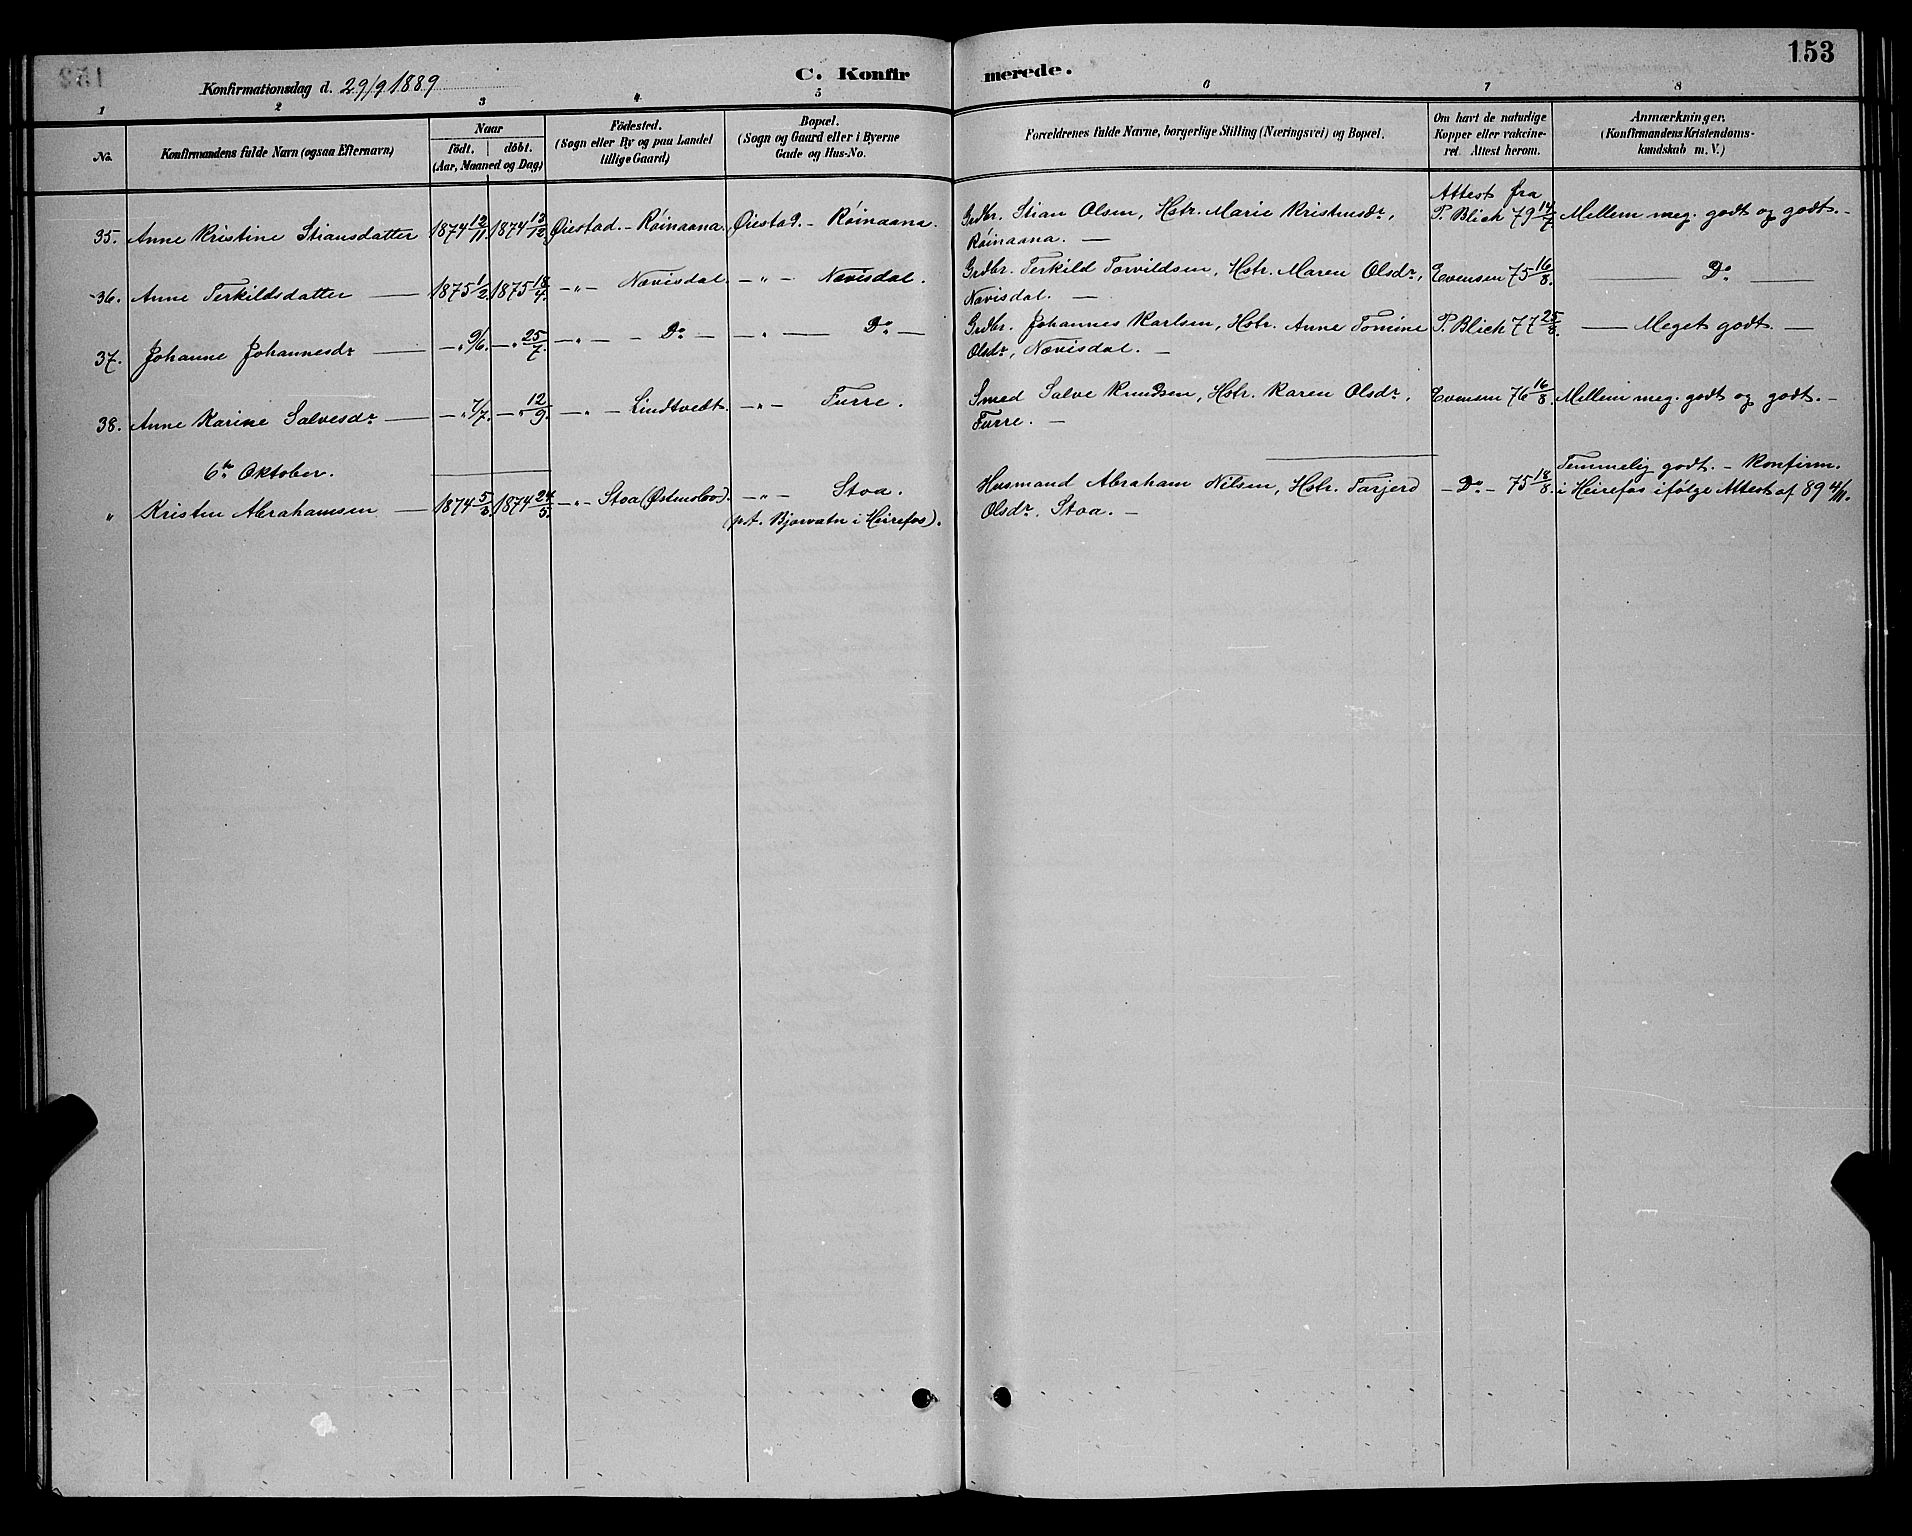 153
Konfirmationsdag d. 29/9 1889
C. Konfir
merede.
1 2 3 4 5 6 7 8
No.
Konfirmandens fulde Navn (ogsaa Efternavn)
Naar
födt. döbt.
(Aar, Maaned og Dag)
Födested.
(Sogn eller By og paa Landet
tillige Gaard)
Bopæl.
(Sogn og Gaard eller i Byerne
Gade og Hus-No.
Forældrenes fulde Navne, borgerlige Stilling (Næringsvei) og Bopæl.
Om havt de naturlige
Kopper eller vakcine-
ret. Attest herom.
Anmærkninger.
(Konfirmandens Kristendoms-
kundskab m. V.)
35. Anne Kristine Stiansdatter 1874 12/11. 1874 13/12. Øiestad. - Röinaana. Øiestad. - Röinaana. Grdbr. Stian Olsen, Hstr. Marie Kristensdr, Attest fra
Röinaana. — P. Blich 79 14/7. Mellem meg. godt og godt. -
36. Anne Terkildsdatter — 1875 1/2. 1875 18/4. - „ - Nævisdal. - „ - Nævisdal. Grdbr. Terkild Torvildsen, Hstr. Maren Olsdr, Evensen 75 16/8. — Do —
Nævisdal. —
37. Johanne Johannesdr — - „ 9/6. - „ 25/7. - „ - - Do - - „ — Do - Grdbr. Johannes Karlsen, Hstr. Anne Tomine P. Blich 77 25/8. — Meget godt. —
Olsdr, Nævisdal. -
38. Anne Karine Salvesdr - - „ 7/7. - „ 12/9. - „ - Lindtvedt. - „ - Furre. Smed Salve Knudsen, Hstr. Karen Olsdr, Evensen 76 16/8. Mellem meg. godt og godt. -
Furre. -
6te Oktober.
„ Kristen Abrahamsen — 1874 5/3. 1874 24/5. - „ - Stoa (Østmoloo). - „ - Stoa. Husmand Abraham Nilsen, Hstr. Tarjerd - Do - 75 18/8. Temmelig godt. - Konfirm.
(p.t. Bjorvatn i Heirefos). Olsdr, Stoa. - i Heirefos ifølge Attest af 89 4/11.